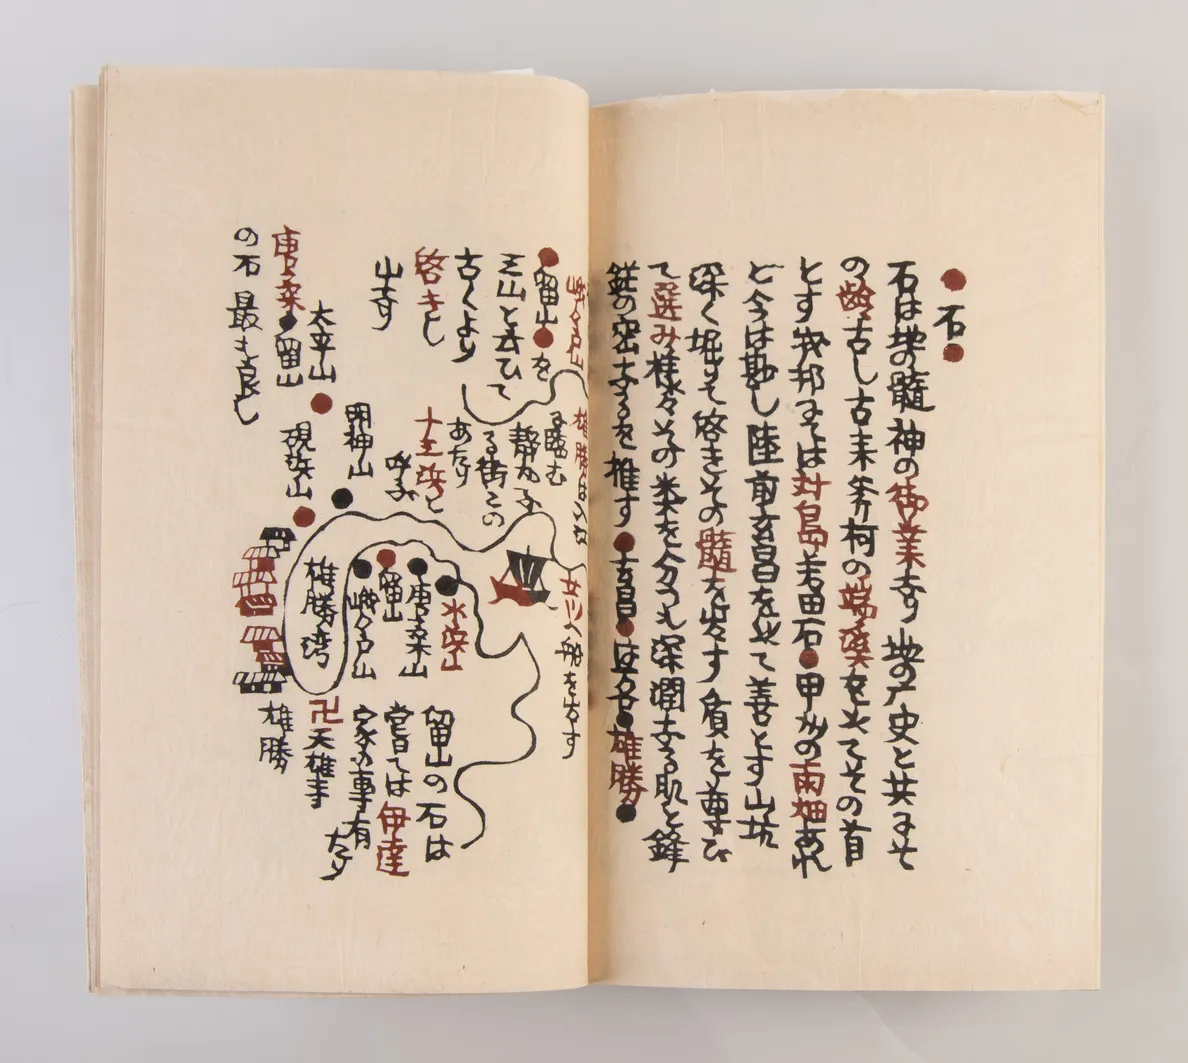 ●石●
石は地の髄神の御業なり 地の产史と共にそ
の齢古し古来斧柯の端溪を以てその首
とす我邦にては対島若田石●甲州の雨畑あれ
ど今は勘し陸前玄昌を以て善とす山坑
深く堀りて啓きその髄を出す質を尊び
て選み桂々その業を分つも深潤なる肌と鋒
鋩の密なるを推す●玄昌●は又名●雄勝●
峨々戸山 雄勝は
女川へ船を出す
●留山●を
に臨む
三山と云ひて
静かな
古くより
る街この
あたり
啓きし
十五浜と
呼ぶ
山なり
明神山
太平山
硯浜山
唐桑●留山
の石 最も良し
水浜山
唐桑山
留山
峨々戸山
雄勝湾
留山の石は
嘗ては伊達
家の事有
なり
卍天雄寺
雄勝